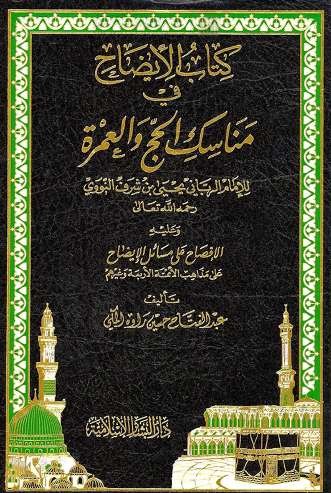 كتاب الإيضاح
في
مناسك الحج والعمرة
للإمام الرباني يحيى بن شرف النووي
رحمه الله تعالى
وعليه
الإفصاح على مسائل الإيضاح
على مذاهب الأئمة الأربعة وغيرهم
تأليف
عبد الفتاح حسين راوه المكي
دار البشائر الإسلامية